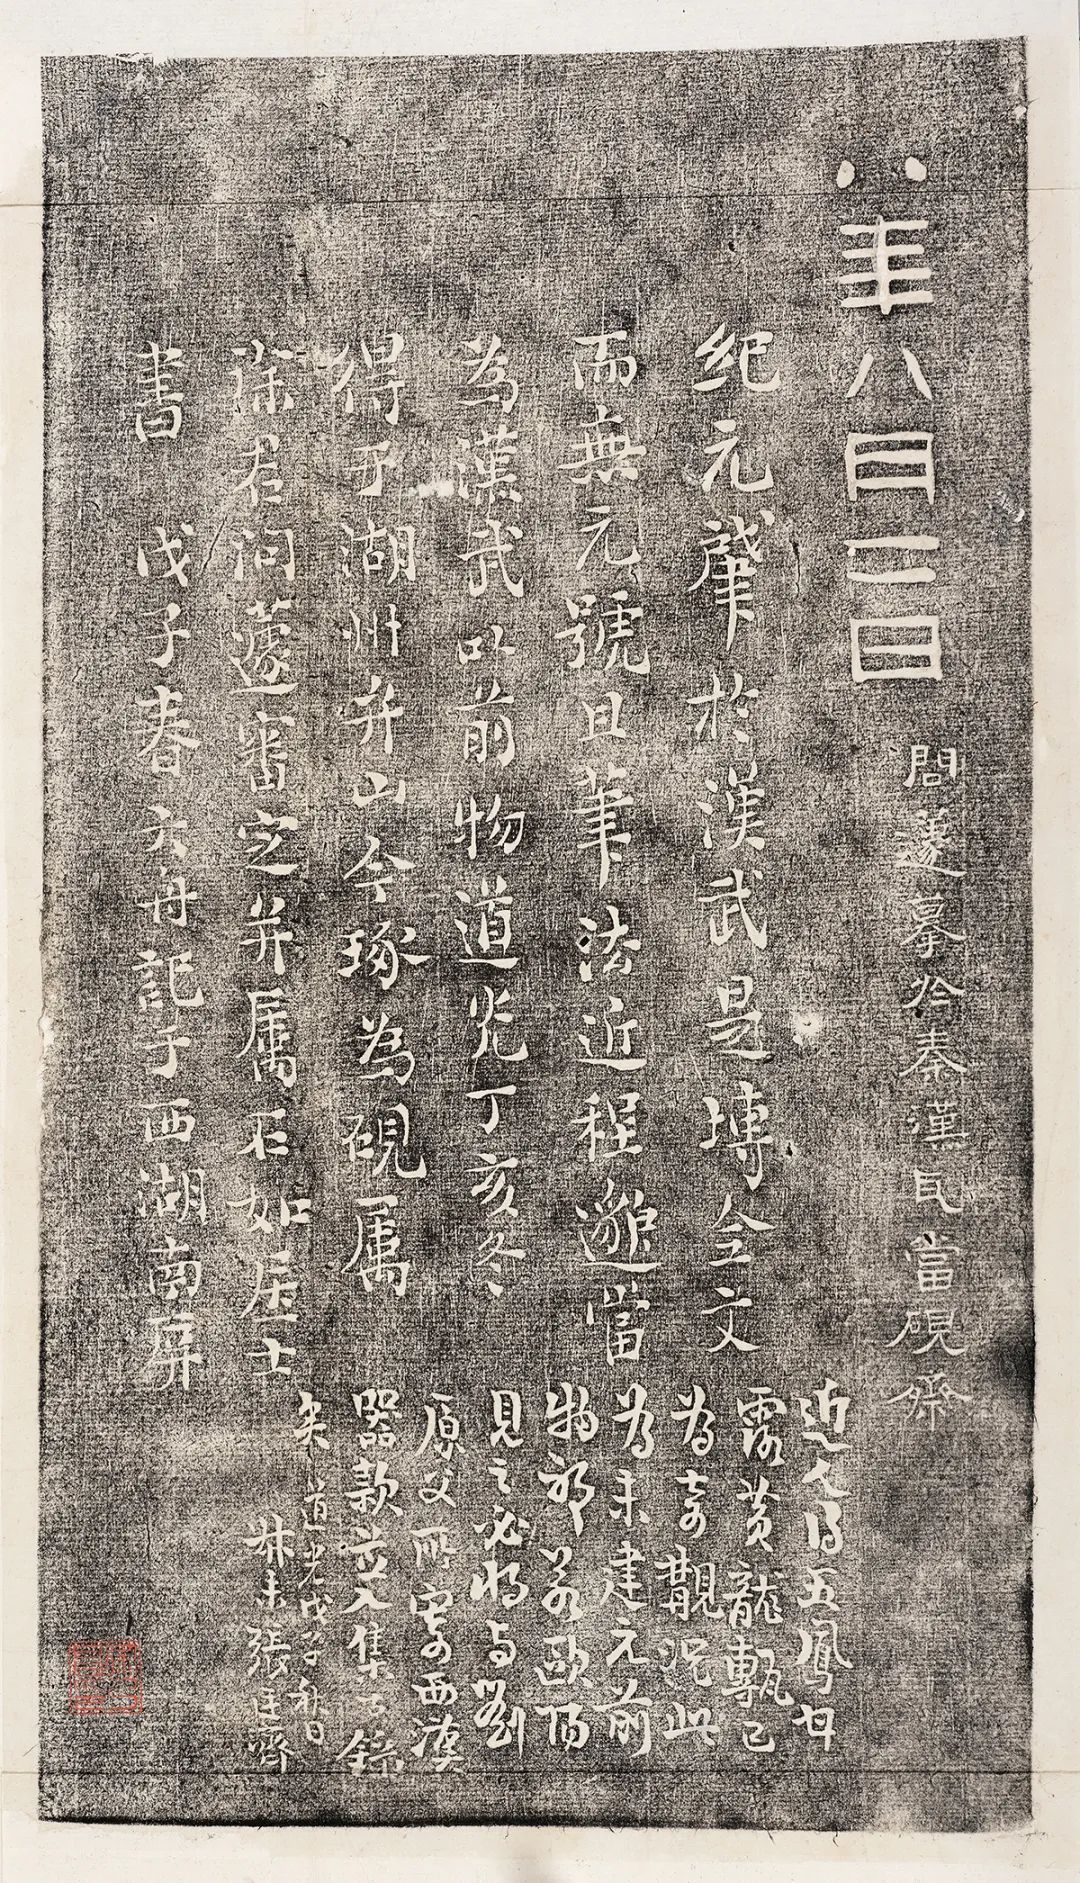 八年八月二日
問蘧摹於秦漢瓦當硯齋
紀元肇於漢武是塼全文
而無元號且筆法近程邈當
為漢武以前物道光丁亥冬
得于湖州弁山今琢為硯屬
徐君問蘧審定并屬石如居士
書 戊子春六舟記于西湖南屏
近人得五鳳甘
露黃龍甎已
為奇觀況此
為未建元前
物邪若歐陽
見之必將与劉
原父所寄西漢
器款並入集古錄
矣道光戊子秋日
叔未張廷濟